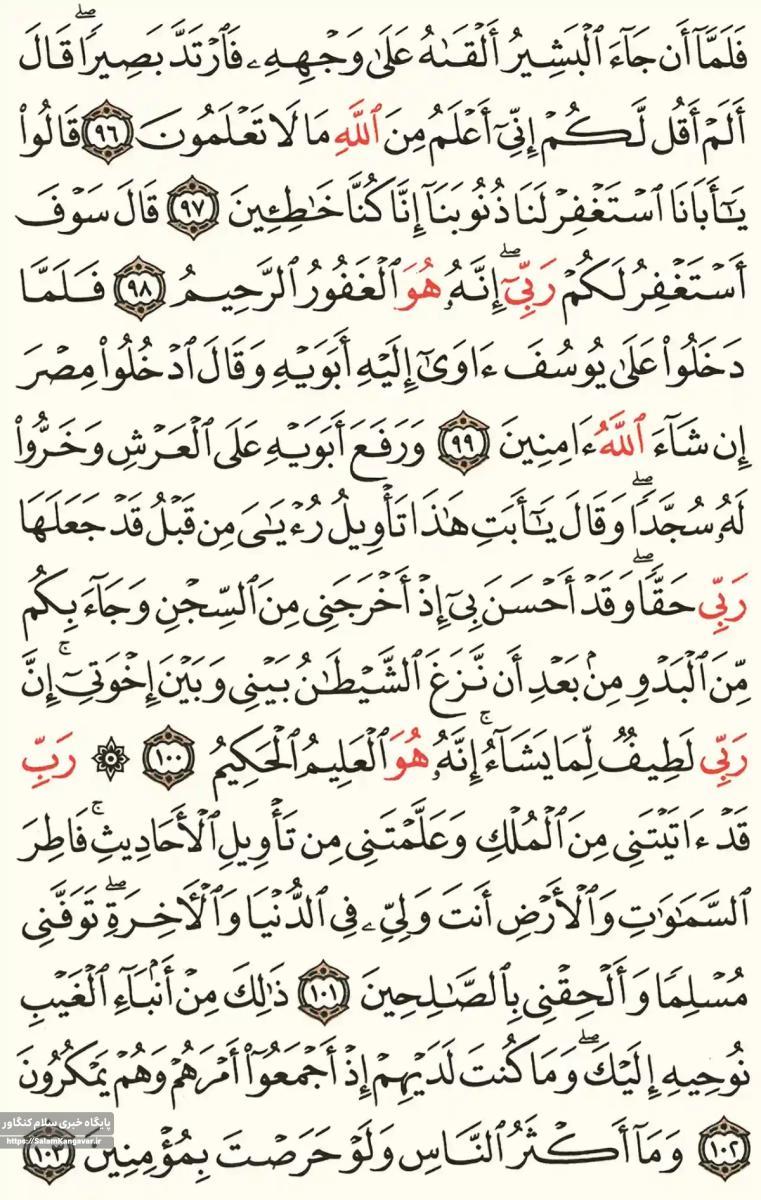 فَلَمَّآ أَن جَآءَ ٱلْبَشِيرُ أَلْقَىٰهُ عَلَىٰ وَجْهِهِۦ فَٱرْتَدَّ بَصِيرًاۖ قَالَ
أَلَمْ أَقُل لَّكُمْ إِنِّىٓ أَعْلَمُ مِنَ ٱللَّهِ مَا لَا تَعْلَمُونَ ٩٦ قَالُوا۟
يَـٰٓأَبَانَا ٱسْتَغْفِرْ لَنَا ذُنُوبَنَآ إِنَّا كُنَّا خَـٰطِـِٔينَ ٩٧ قَالَ سَوْفَ
أَسْتَغْفِرُ لَكُمْ رَبِّىٓۖ إِنَّهُۥ هُوَ ٱلْغَفُورُ ٱلرَّحِيمُ ٩٨ فَلَمَّا
دَخَلُوا۟ عَلَىٰ يُوسُفَ ءَاوَىٰٓ إِلَيْهِ أَبَوَيْهِ وَقَالَ ٱدْخُلُوا۟ مِصْرَ
إِن شَآءَ ٱللَّهُ ءَامِنِينَ ٩٩ وَرَفَعَ أَبَوَيْهِ عَلَى ٱلْعَرْشِ وَخَرُّوا۟
لَهُۥ سُجَّدًاۖ وَقَالَ يَـٰٓأَبَتِ هَـٰذَا تَأْوِيلُ رُءْيَـٰىَ مِن قَبْلُ قَدْ جَعَلَهَا
رَبِّى حَقًّاۖ وَقَدْ أَحْسَنَ بِىٓ إِذْ أَخْرَجَنِى مِنَ ٱلسِّجْنِ وَجَآءَ بِكُم
مِّنَ ٱلْبَدْوِ مِنۢ بَعْدِ أَن نَّزَغَ ٱلشَّيْطَـٰنُ بَيْنِى وَبَيْنَ إِخْوَتِىٓۚ إِنَّ
رَبِّى لَطِيفٌ لِّمَا يَشَآءُۚ إِنَّهُۥ هُوَ ٱلْعَلِيمُ ٱلْحَكِيمُ ١٠٠ ۞ رَبِّ
قَدْ ءَاتَيْتَنِى مِنَ ٱلْمُلْكِ وَعَلَّمْتَنِى مِن تَأْوِيلِ ٱلْأَحَادِيثِۚ فَاطِرَ
ٱلسَّمَـٰوَٰتِ وَٱلْأَرْضِ أَنتَ وَلِىِّۦ فِى ٱلدُّنْيَا وَٱلْـَٔاخِرَةِۖ تَوَفَّنِى
مُسْلِمًا وَأَلْحِقْنِى بِٱلصَّـٰلِحِينَ ١٠١ ذَٰلِكَ مِنْ أَنۢبَآءِ ٱلْغَيْبِ
نُوحِيهِ إِلَيْكَۖ وَمَا كُنتَ لَدَيْهِمْ إِذْ أَجْمَعُوٓا۟ أَمْرَهُمْ وَهُمْ يَمْكُرُونَ
١٠٢ وَمَآ أَكْثَرُ ٱلنَّاسِ وَلَوْ حَرَصْتَ بِمُؤْمِنِينَ ١٠٣
پایگاه خبری سلام کنگاور
https://SalamKangavar.ir